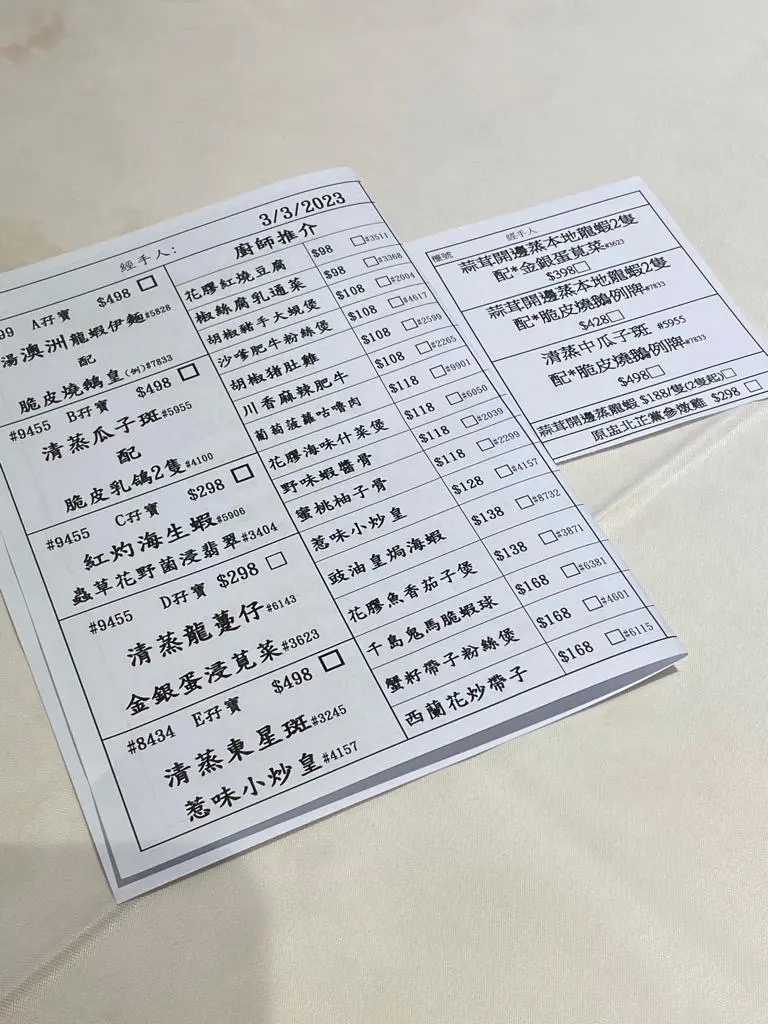 3/3/2023
經手人:
99 A孖寶 $498 □
湯澳洲龍蝦伊麵#5828
配
脆皮燒鵝皇(例)#7833
#9455 B孖寶 $498 □
清蒸瓜子斑#5955
配
脆皮乳鴿2隻#4100
#9455 C孖寶 $298 □
紅灼海生蝦#5906
蟲草花野菌浸翡翠#3404
#9455 D孖寶 $298 □
清蒸龍躉仔#6143
金銀蛋浸莧菜#3623
#8434 E孖寶 $498 □
清蒸東星斑#3245
惹味小炒皇#4157
廚師推介
花膠紅燒豆腐 $98 □#3511
椒絲腐乳通菜 $98 □#3368
胡椒豬手大蜆煲 $108 □#2004
沙爹肥牛粉絲煲 $108 □#4617
胡椒猪肚雞 $108 □#2599
川香麻辣肥牛 $108 □#2265
葡萄菠蘿咕嚕肉 $118 □#9901
花膠海味什菜煲 $118 □#6050
野味蝦醬骨 $118 □#2039
蜜桃柚子骨 $118 □#2299
惹味小炒皇 $128 □#4157
豉油皇焗海蝦 $138 □#8732
花膠魚香茄子煲 $138 □#3871
千島鬼馬脆蝦球 $168 □#6381
蟹籽帶子粉絲煲 $168 □#4601
西蘭花炒帶子 $168 □#6115
檯號 經手人
蒜茸開邊蒸本地龍蝦2隻
配*金銀蛋莧菜#3623
$398□
蒜茸開邊蒸本地龍蝦2隻
配*脆皮燒鵝例牌#7833
$428□
清蒸中瓜子斑 #5955
配*脆皮燒鵝例牌#7833
$498□
蒜茸開邊蒸龍蝦 $188/隻(2隻起)□
原盅北芷黨參燉雞 $298 □